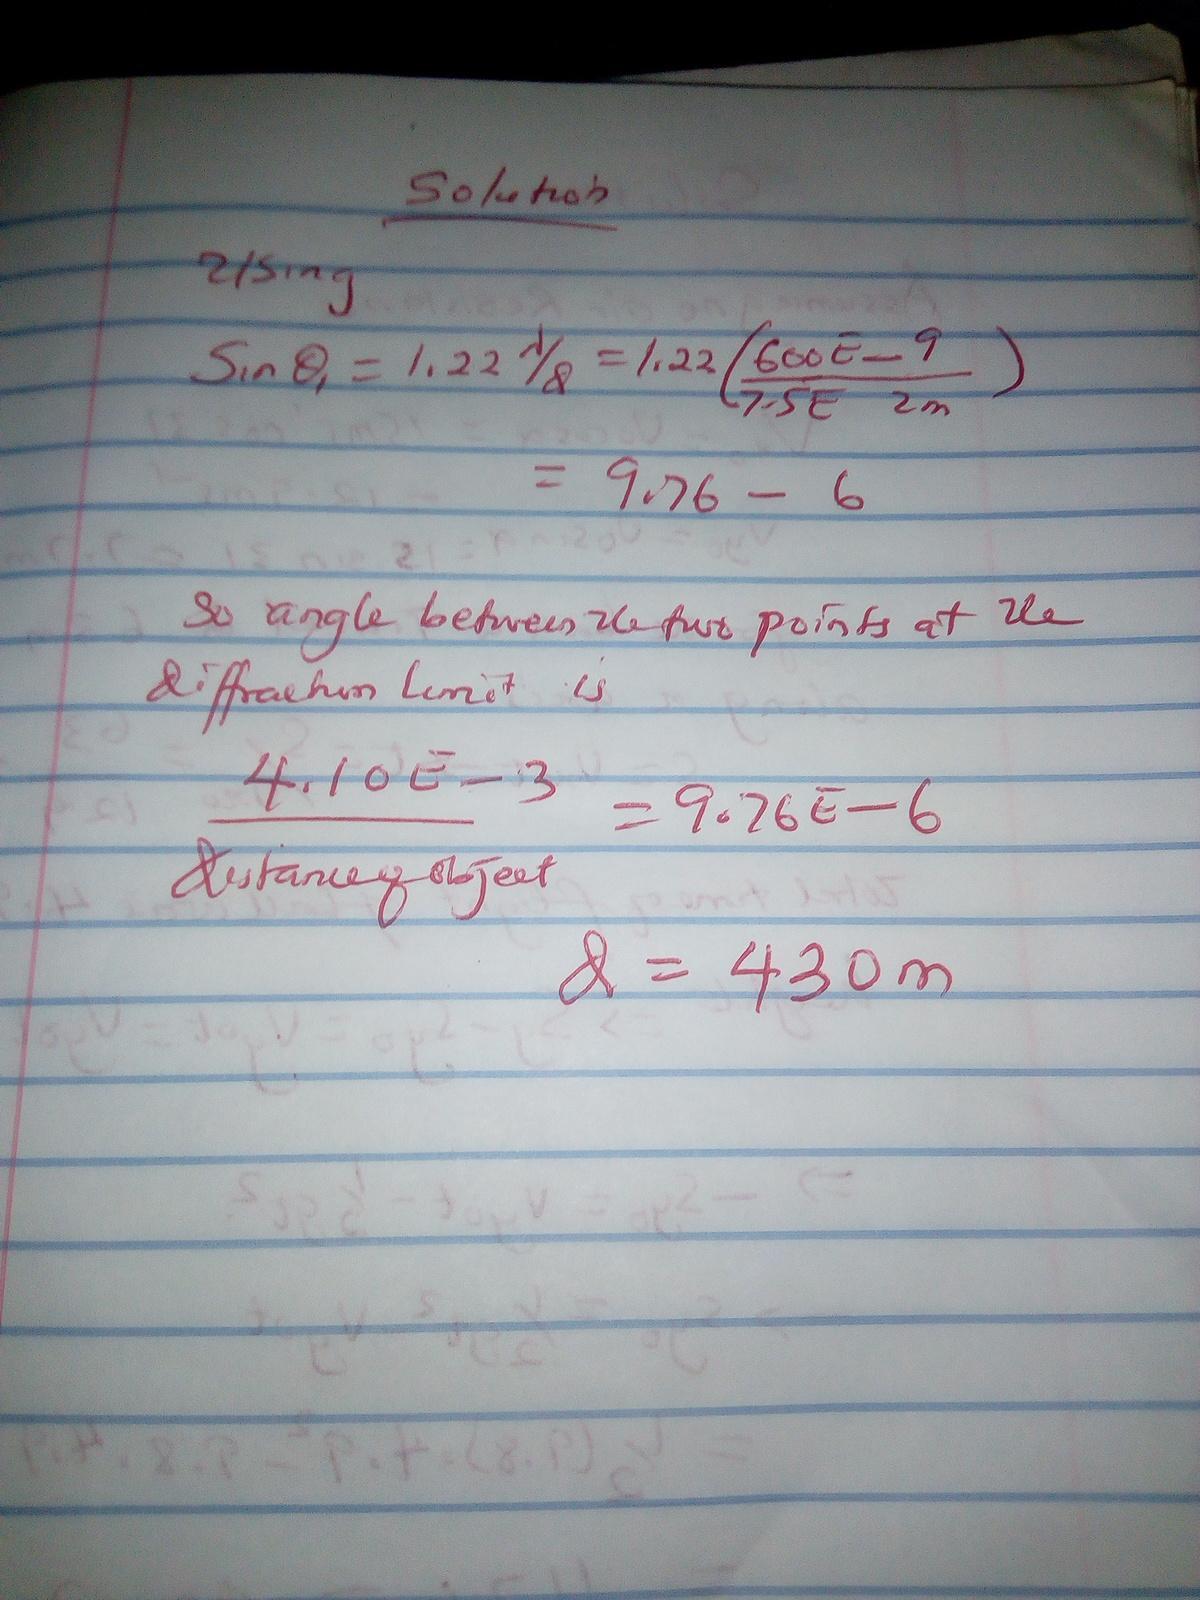 Solution
Using
Sin θ₁ = 1.22 λ/d = 1.22 (600E-9 / 7.5E 2m)
= 9.76 - 6
So angle between the two points at the
diffraction limit is
4.10E-3 / distance of object = 9.76E-6
d = 430m